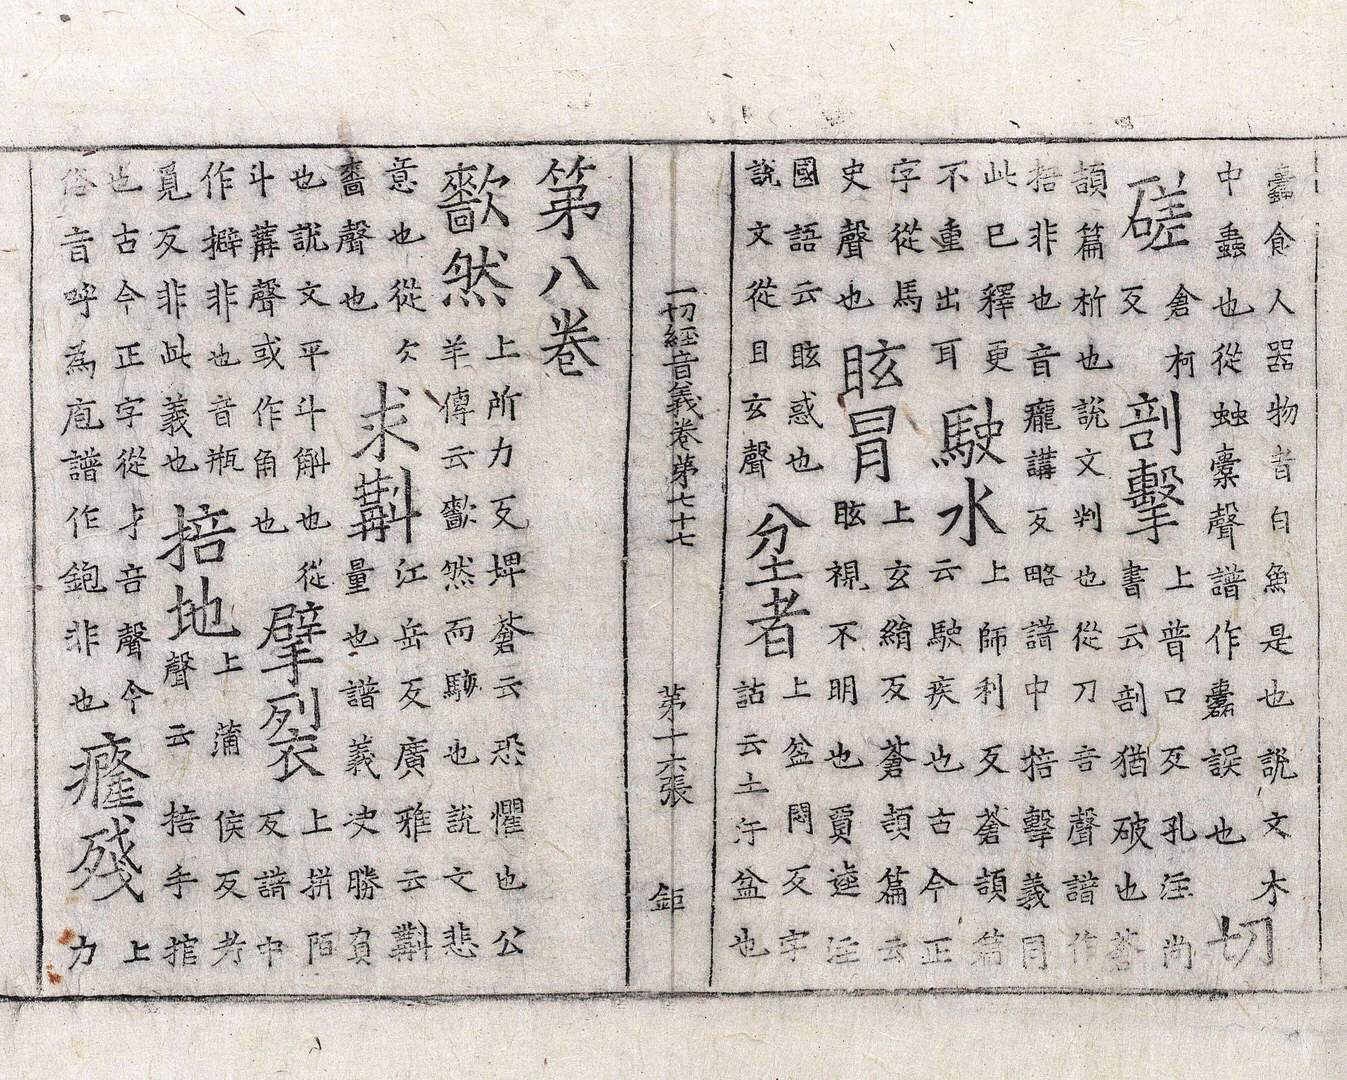 蠹食人器物者白魚是也說文木
中蟲也從䖵橐聲譜作蠹誤也
切磋
倉柯
反
剖擊
上普口反孔注尚
書云剖猶破也蒼
頡篇析也說文判也從刀咅聲譜作
掊非也音龐講反略譜中掊擊義同
此已釋更
不重出耳
駛水
上師利反蒼頡篇
云駛疾也古今正
字從馬
史聲也
眩冒
上玄絹反蒼頡篇云
眩視不明也賈逵注
國語云眩惑也
說文從目玄聲
坌者
上盆悶反字
詁云土汙坌也
一切經音義卷第七十七 第十六張 鉅
第八卷
㱇然
上所力反埤蒼云恐懼也公
羊傳云㱇然而駭也說文悲
意也從欠
嗇聲也
求斠
江岳反廣雅云斠
量也譜義決勝負
也說文平斗斛也從
斗冓聲或作角也
擘列衣
上拼陌
反譜中
作擗非也音瓶
覓反非此義也
掊地
上蒲侯反考
聲云掊手捾
也古今正字從扌咅聲今
俗音呼為庖譜作鉋非也
癃殘
上
力